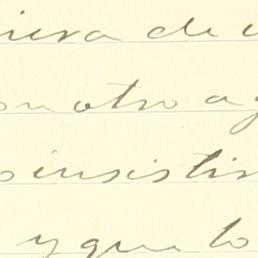 iera de
on otro a
insistir
y que lo